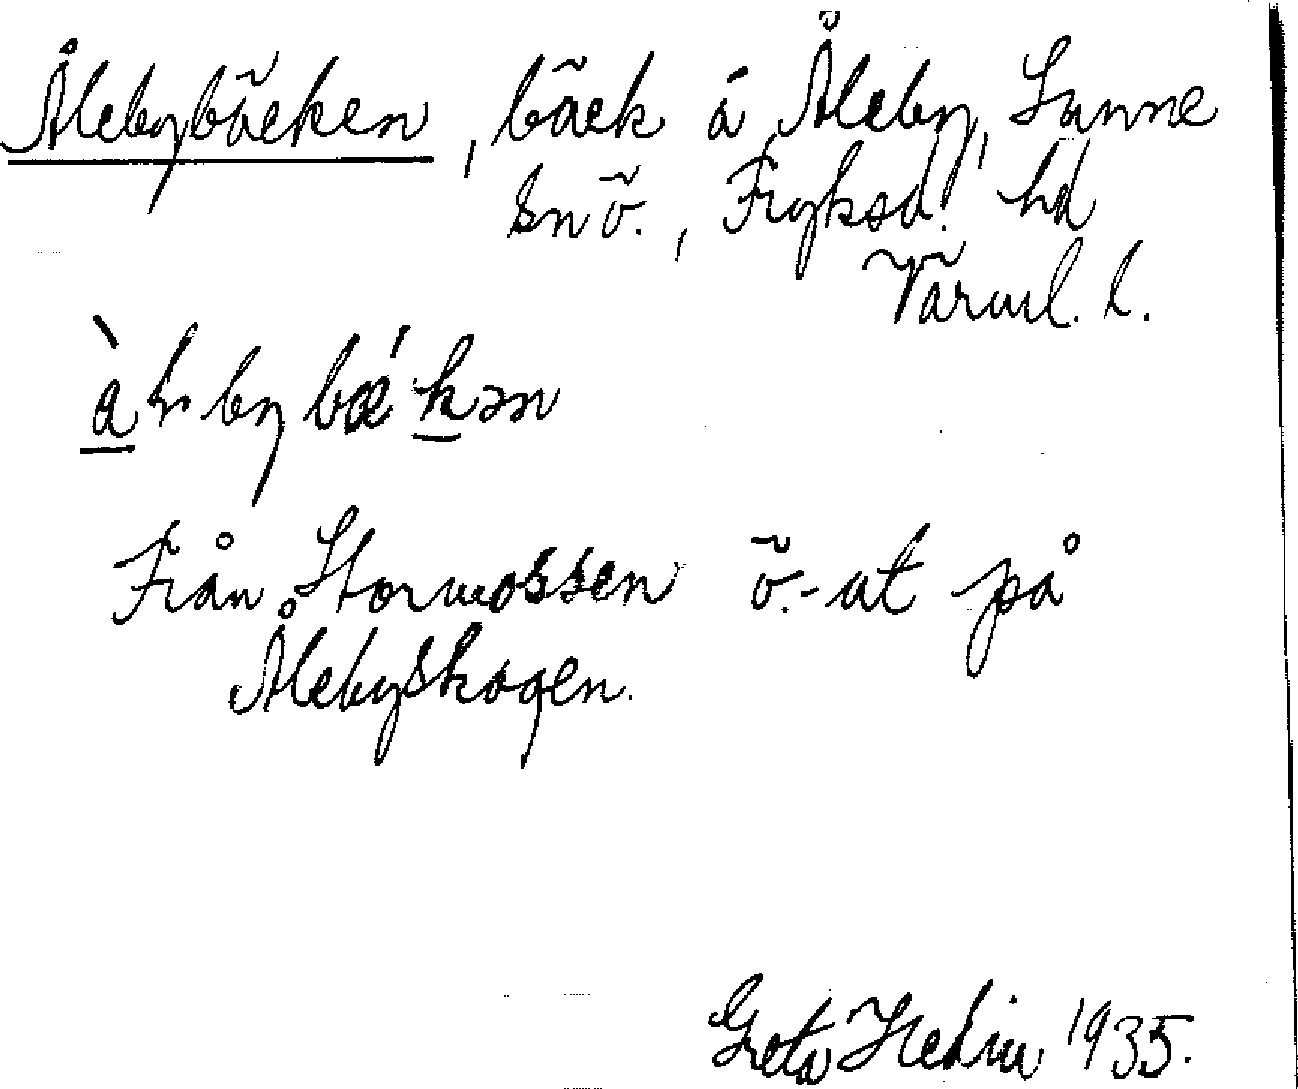 Ålebybäcken, bäck å Åleby, Sunne
sn ö., Fryksd. hd
Värml. l.
Från Stormossen ö.-ut på
Ålebyskogen.
Greta Hedin 1935.